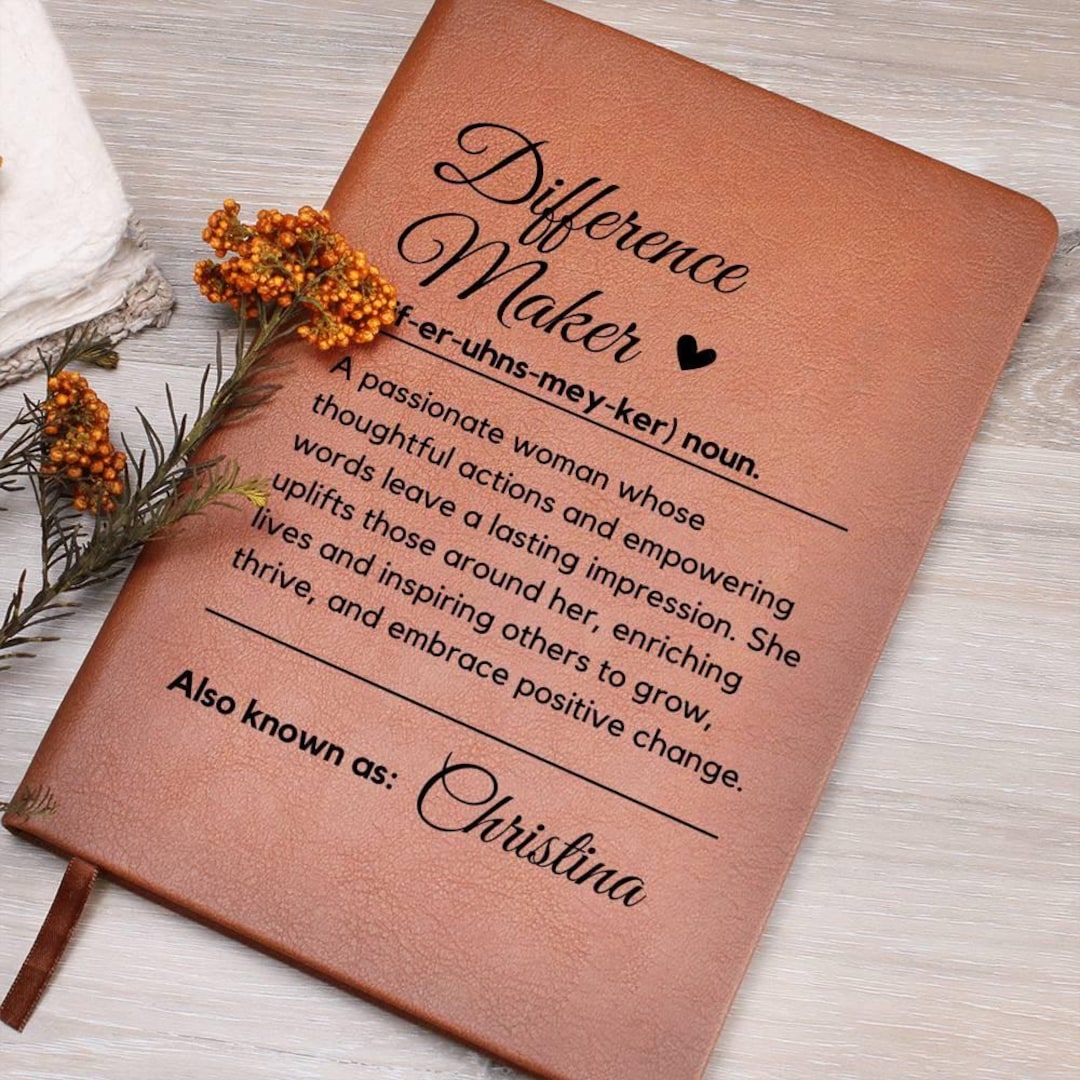 Difference
Maker ♥
f-er-uhns-mey-ker) noun.
A passionate woman whose
thoughtful actions and empowering
words leave a lasting impression. She
uplifts those around her, enriching
lives and inspiring others to grow,
thrive, and embrace positive change.
Also known as: Christina